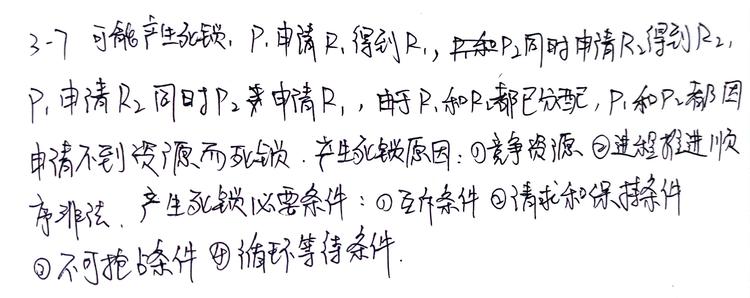 3-7 可能产生死锁. P₁申请R₁得到R₁, P₂同时申请R₂得到R₂,
P₁申请R₂同时P₂申请R₁, 由于R₁和R₂都已分配, P₁和P₂都因
申请不到资源而死锁. 产生死锁原因: ①竞争资源 ②进程推进顺
序非法. 产生死锁必要条件: ①互斥条件 ②请求和保持条件
③不可抢占条件 ④循环等待条件.